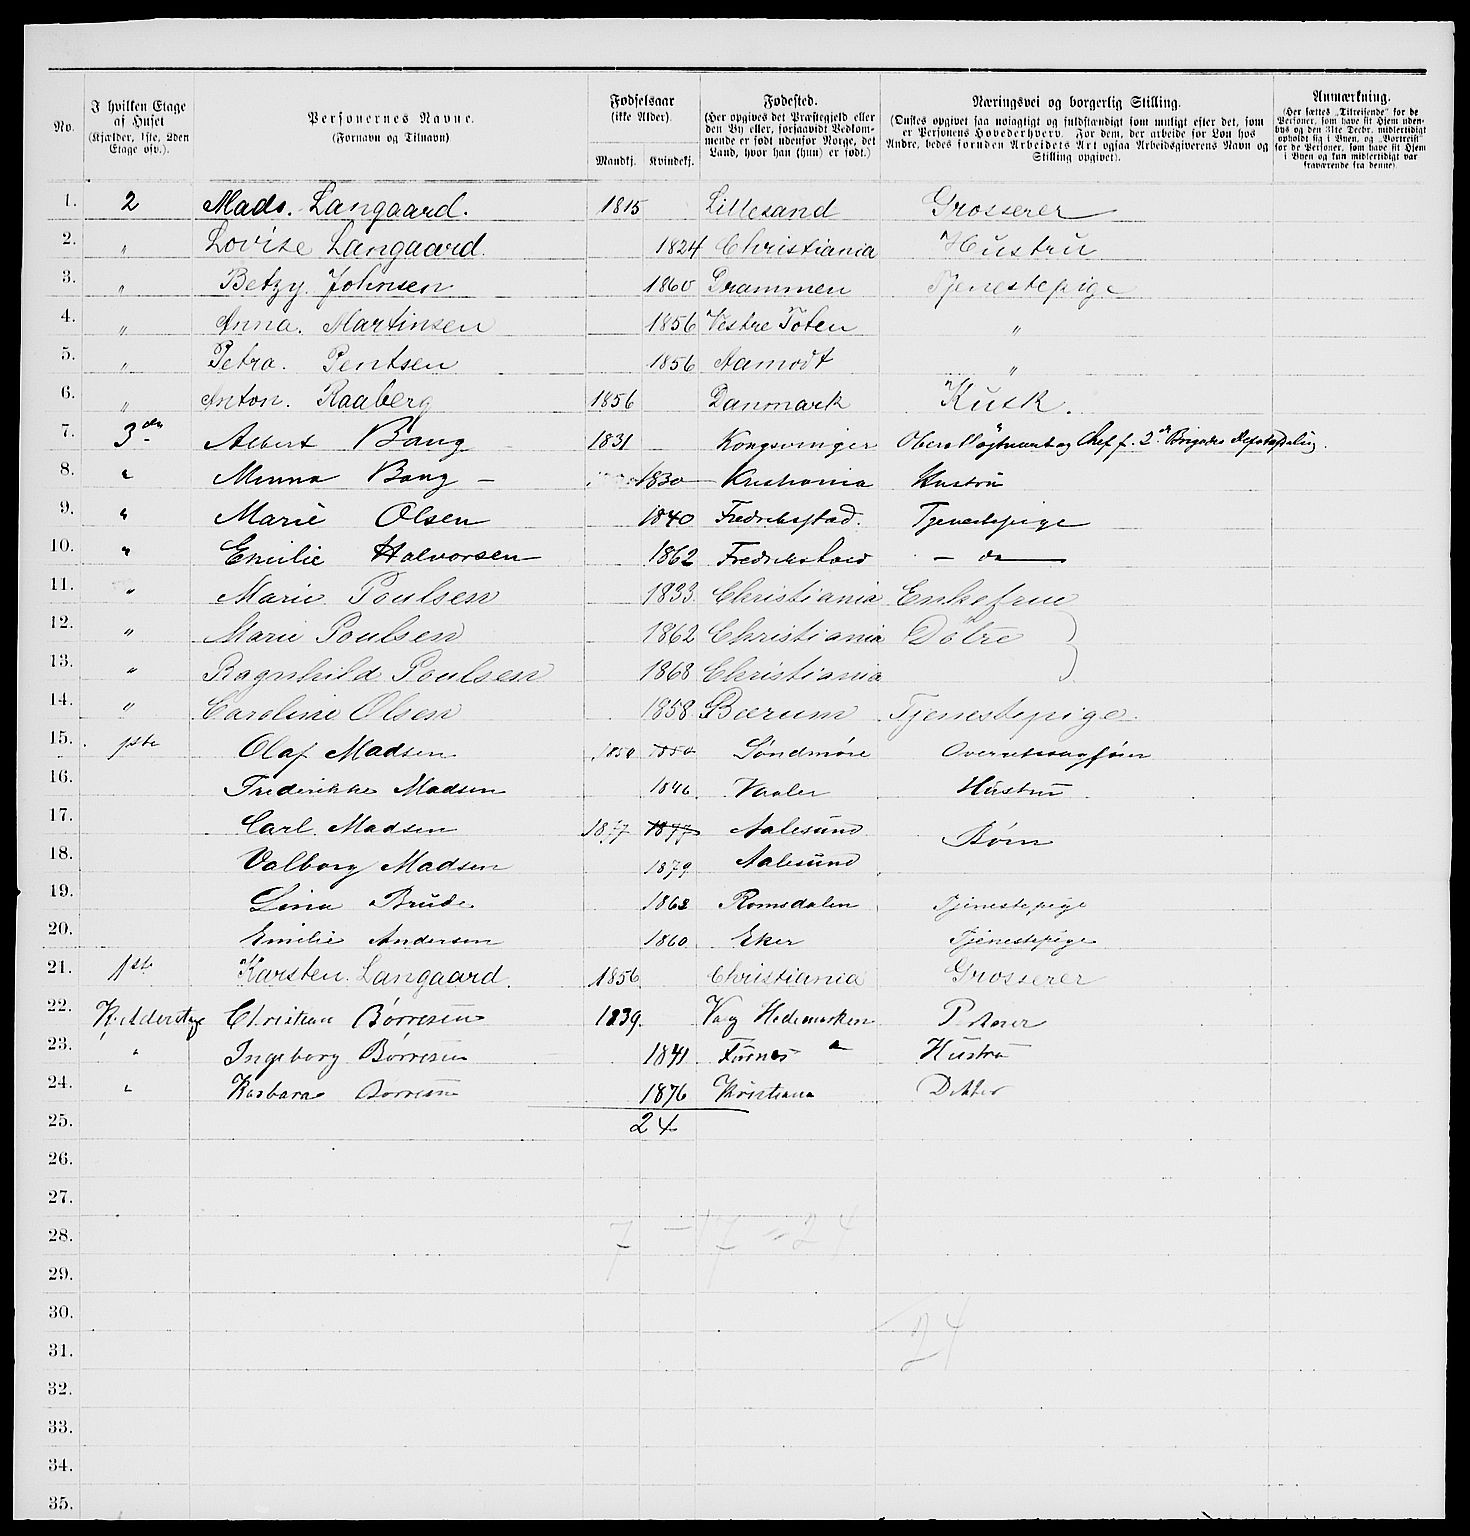 No.
I hvilken Etage af Huset (Kjælder, 1ste, 2den Etage osv.).
Personernes Navne. (Fornavn og Tilnavn)
Fødselsaar (ikke Alder).
Mandkj. Kvindekj.
Fødested. (Her opgives det Præstegjeld eller den By eller, forsaavidt Vedkommende er født udenfor Norge, det Land, hvor han (hun) er født.)
Næringsvei og borgerlig Stilling. (Ønskes opgivet saa nøiagtigt og fuldstændigt som muligt efter det, som er Personens Hovederhverv. For dem, der arbeide for Løn hos Andre, bedes foruden Arbeidets Art ogsaa Arbeidsgiverens Navn og Stilling opgivet).
Anmærkning. (Her sættes „Tilreisende" for de Personer, som have sit Hjem udenbys og den 31te Decbr. midlertidigt opholdt sig i Byen, og „Bortreist" for de Personer, som have sit Hjem i Byen og kun midlertidigt var fraværende fra denne).
1. 2 Mads. Langaard. 1815 Lillesand Grosserer
2. " Lovise Langaard. 1824 Christiania Hustru
3. " Betzy Johnsen 1860 Drammen Tjenestepige
4. " Anna. Martinsen 1856 Vestre Toten "
5. " Petra. Pentsen 1856 Aamodt "
6. " Anton. Raaberg 1856 Danmark Kusk.
7. 3den Albert Bang 1831 Kongsvinger Oberstløjtnant og Chef f. 2den Brigades Depotafdeling.
8. " Minna Bang – 1830 Kristiania Hustru
9. " Marie Olsen 1840 Fredrikstad. Tjenestepige
10. " Emilie Halvorsen 1862 Fredrikstad — do —
11. " Marie Poulsen 1833 Christiania Enkefrue
12. " Marie Poulsen 1862 Christiania Døtre
13. " Ragnhild Poulsen 1868 Christiania
14. " Caroline Olsen 1858 Bærum Tjenestepige.
15. 1ste Olaf Madsen 1850 1850 Søndmøre Overretssagfører
16. Frederikke Madsen 1846 Vaaler Hustru
17. Carl Madsen 1877 1877 Aalesund Børn
18. Valborg Madsen 1879 Aalesund
19. Lina Brude 1862 Romsdalen Tjenestepige
20. Emilie Andersen 1860 Eker Tjenestepige
21. 1ste Karsten Langaard. 1856 Christiania Grosserer
22. Kjelderetage Christian Børresen 1839. Vang Hedemarken
23. " Ingeborg Børresen 1841 Furnes " Hustru
24. " Barbara Børresen 1876 Kristiania Datter
25. 24
26.
27.
28. 7 – 17 = 24
29.
30.
31. 24
32.
33.
34.
35.